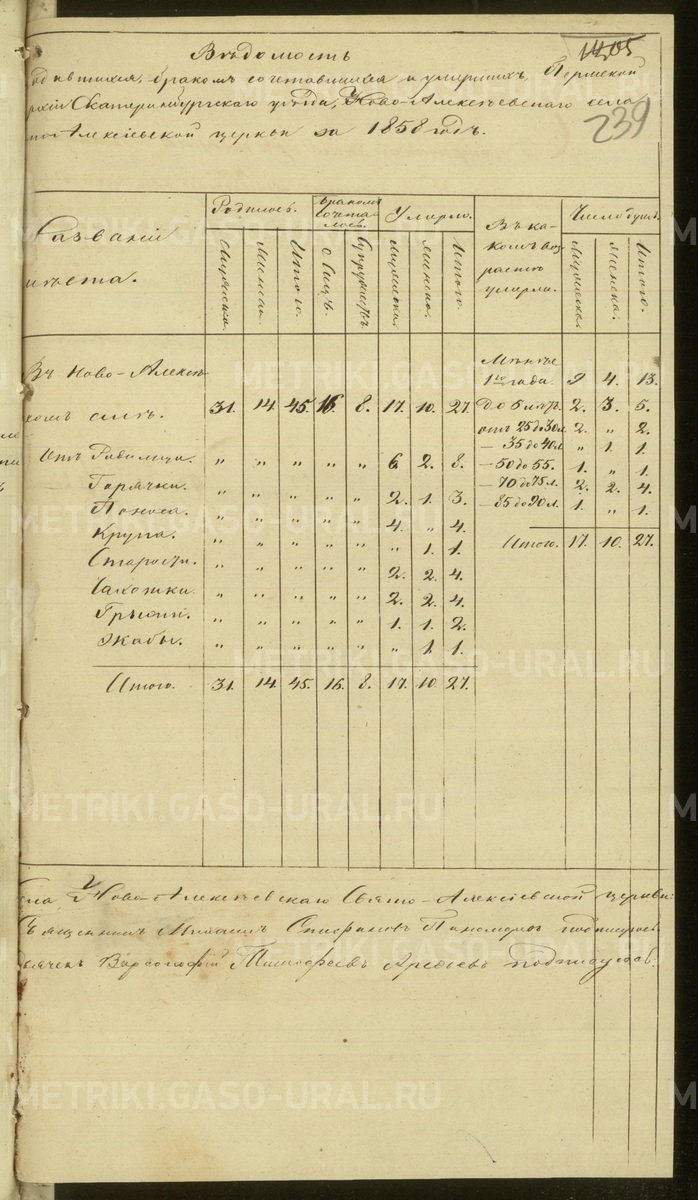 1405
239
Вѣдомость
родившихся, бракомъ сочетавшихся и умершихъ, Пермской
Екатеринбургскаго уѣзда, Ново-Алексѣевскаго села
Алексіевской церкви за 1858 годъ.
Названіи мѣста.
Родилось. Бракомъ сочеталось. Умерло. Въ какомъ возрастѣ умерли. Число душъ.
Мужеска. Женска. Итого. Супружествъ Мужеска. Женско. Итого. Мужеска. Женска. Итого.
Въ Ново-Алексѣ-
комъ селѣ. 31. 14. 45. 16. 8. 17. 10. 27.
Отъ Родимца. „ „ „ „ „ 6. 2. 8.
Горячки. „ „ „ „ „ 2. 1. 3.
Поноса. „ „ „ „ „ 4. „ 4.
Крупа. „ „ „ „ „ „ 1. 1.
Старости. „ „ „ „ „ 2. 2. 4.
Чахотки. „ „ „ „ „ 2. 2. 4.
Грыжи. „ „ „ „ „ 1. 1. 2.
Жабы. „ „ „ „ „ „ 1. 1.
Итого. 31. 14. 45. 16. 8. 17. 10. 27.
Менѣе
1го года. 9 4. 13.
До 5 лѣтъ. 2. 3. 5.
отъ 25 до 30 л. 2. „ 2.
— 35 до 40 л. „ 1. 1.
— 50 до 55. 1. „ 1.
— 70 до 75 л. 2. 2. 4.
— 85 до 90 л. 1. „ 1.
Итого. 17. 10. 27.
Ново-Алексѣевскаго Свято-Алексіевской церкви:
Священникъ Михаилъ Стефановъ Пономаревъ подписуюсь
Варсонофій Тимофеевъ подписуюсь.
METRIKI.GASO-URAL.RU